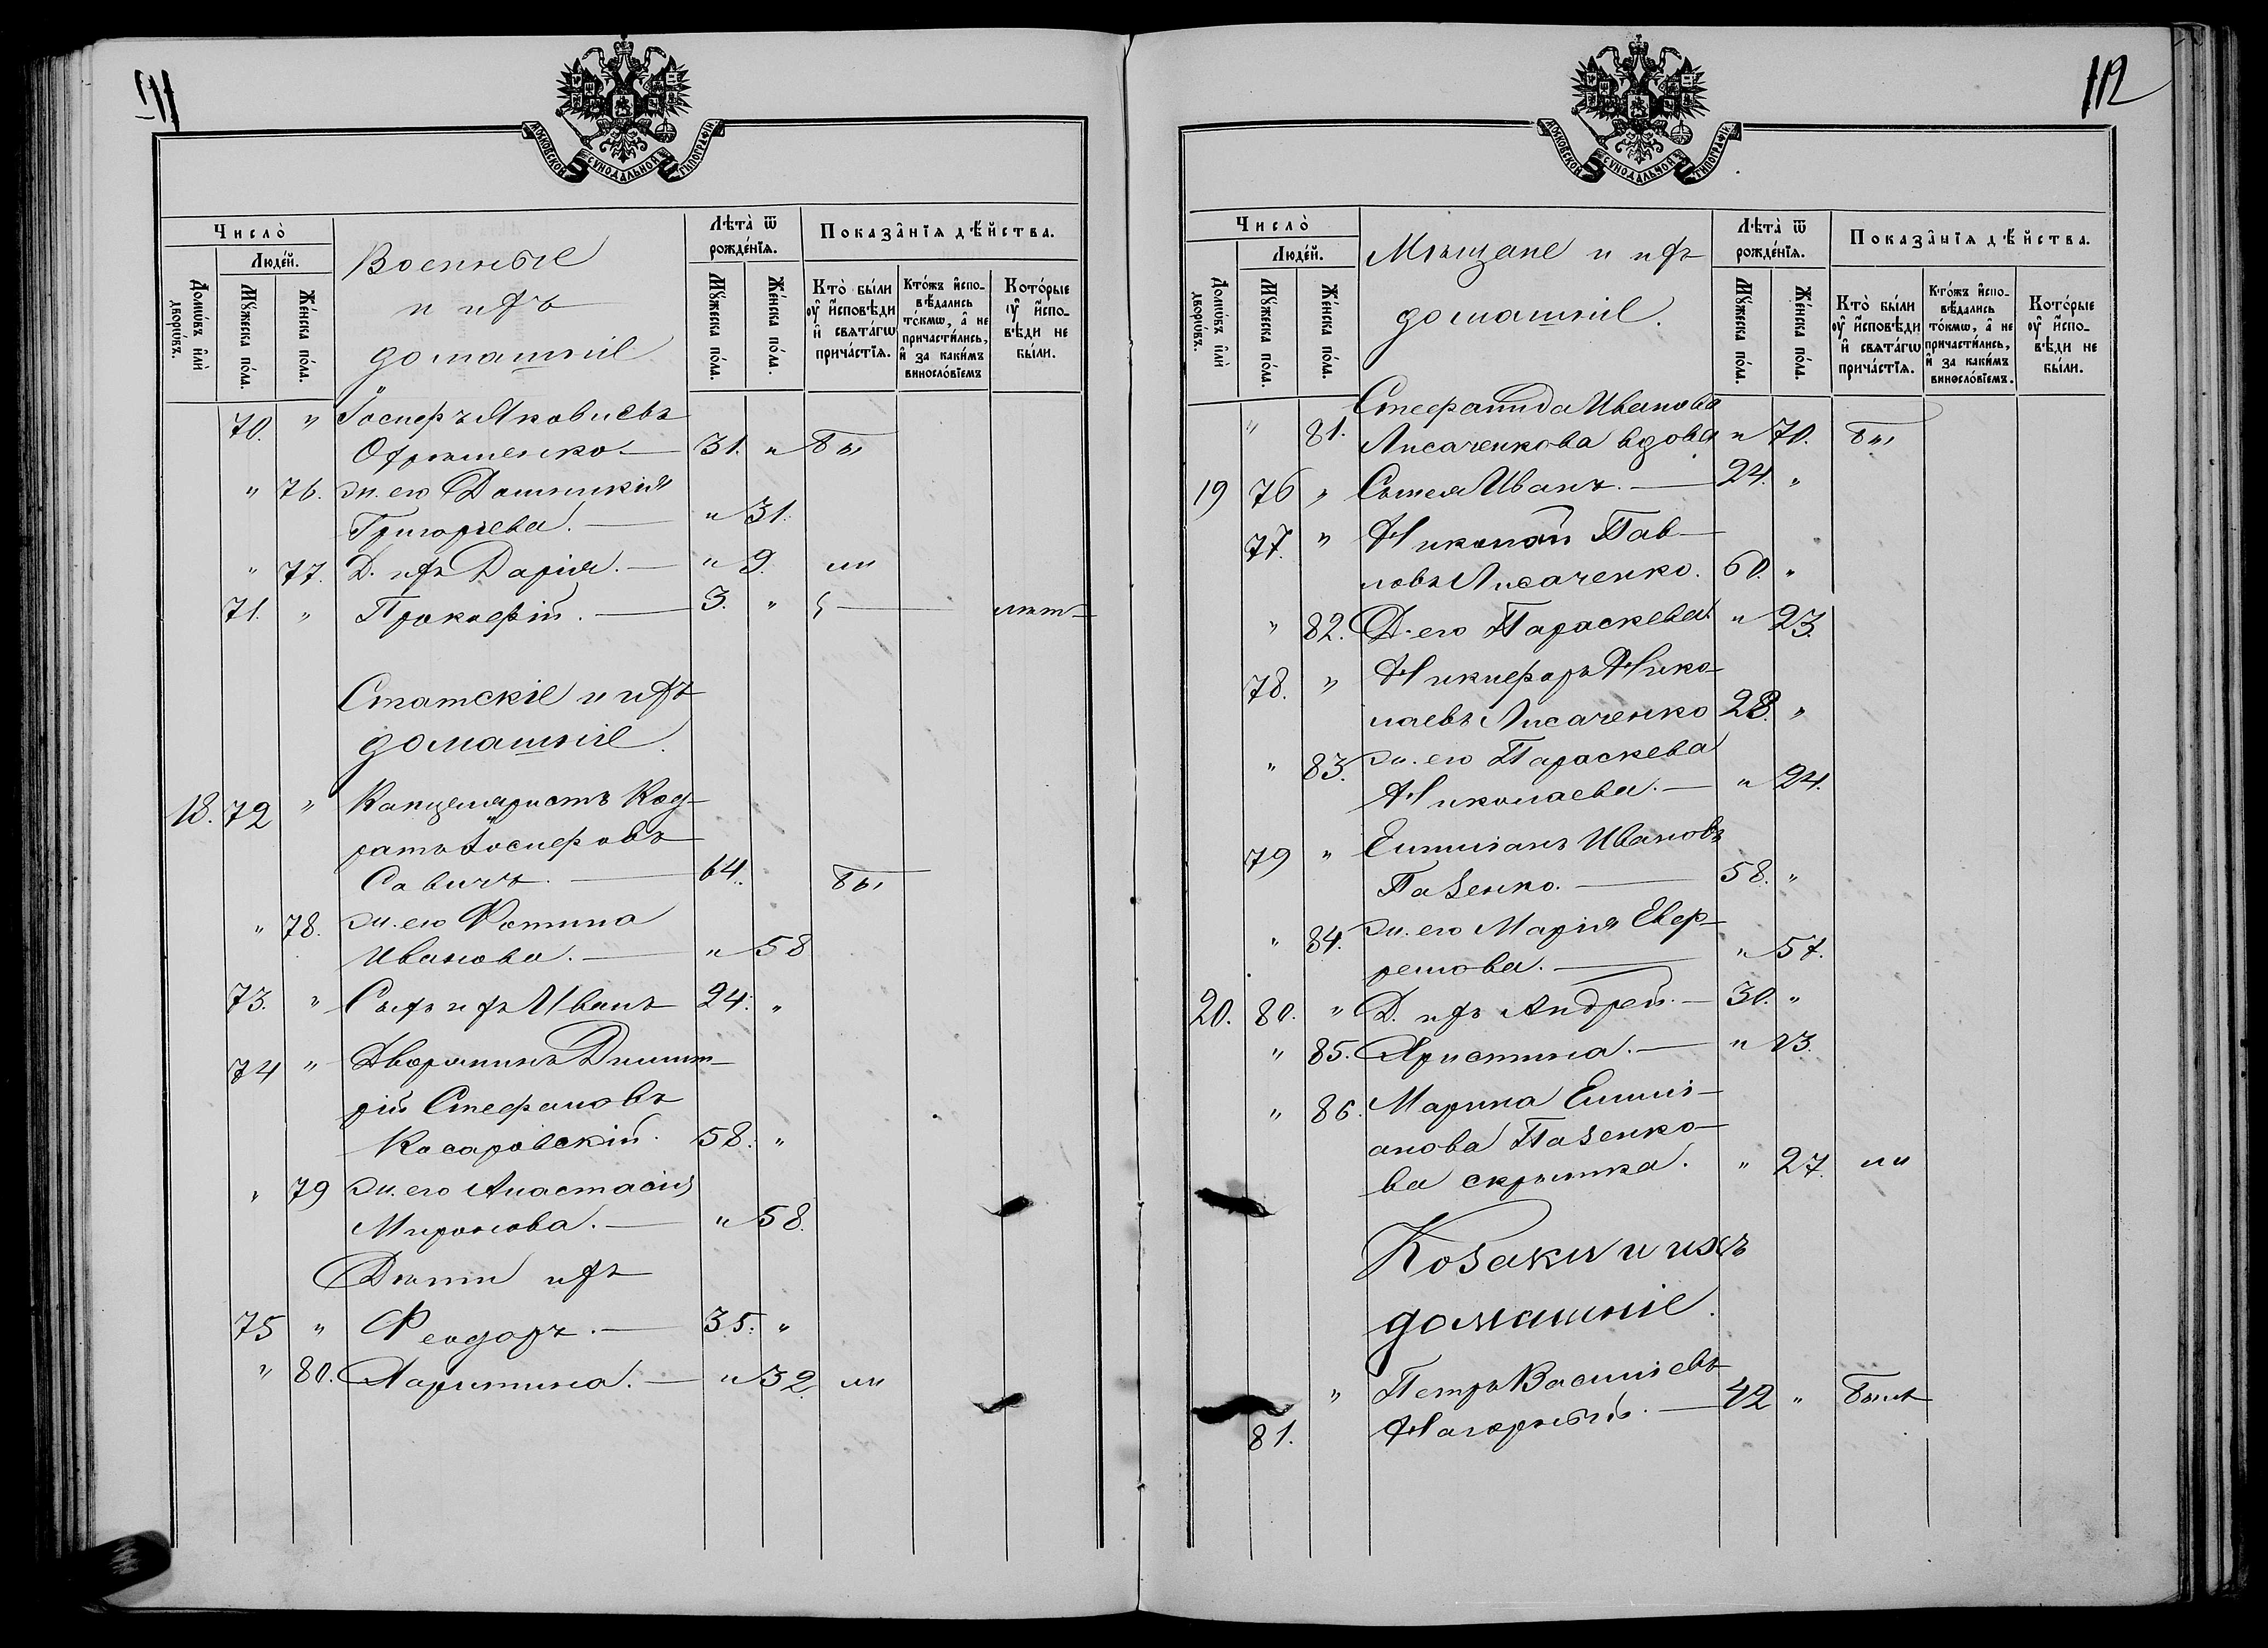 111
МОСКОВСКОЙ СѴНОДАЛЬНОЙ ТИПОГРАФІИ.
Число̀
Люде́й.
Домѡ́въ и҆лѝ дворѡ́въ.
Мꙋ́жеска по́ла.
Же́нска по́ла.
Военные
и ихъ
домашніе
Лѣта̀ ѿ рожде́нїѧ.
Мꙋ́жеска по́ла.
Же́нска по́ла.
Показа̑нїѧ дѣ́йства.
Кто̀ бы́ли ᲂу҆ и҆сповѣди и҆ свята́гѡ прича́стїѧ.
Кто́жъ и҆спо-вѣдались то́кмѡ, а҆ не причасти́лись, и҆ за каки́мъ виносло́вїемъ
Кото́рые ᲂу҆ и҆спо-вѣди не бы́ли.
70. " Іосифъ Яковлевъ
31. " бы
" 76. ж. его Домникія
Григорьева. — " 31.
" 77. Д. ихъ Дарія. — " 9. ли
71. " Прокофій. — 3. "
Статскіе и ихъ
домашніе.
18. 72 " Канцеляристъ Код-
ратъ Іосифовъ
Савичъ. — 64. бы
" 78. ж. его Фотина
Иванова. — " 58
73. " Сынъ ихъ Иванъ 24. "
74 " Дворянинъ Димит-
рій Стефановъ
Косаровскій. 58. "
" 79 ж. его Анастасія
Миронова. — " 58.
Дѣти ихъ
75 " Феодоръ. — 35. "
" 80. Харитина. — " 32. ли
112
МОСКОВСКОЙ СѴНОДАЛЬНОЙ ТИПОГРАФІИ.
Число̀
Люде́й.
Домѡ́въ и҆лѝ дворѡ́въ.
Мꙋ́жеска по́ла.
Же́нска по́ла.
Мѣщане и ихъ
домашніе.
Лѣта̀ ѿ рожде́нїѧ.
Мꙋ́жеска по́ла.
Же́нска по́ла.
Показа̑нїѧ дѣ́йства.
Кто̀ бы́ли ᲂу҆ и҆сповѣди и҆ свята́гѡ прича́стїѧ.
Кто́жъ и҆спо-вѣдались то́кмѡ, а҆ не причасти́лись, и҆ за каки́мъ виносло́вїемъ.
Кото́рые ᲂу҆ и҆спо-вѣди не бы́ли.
Стефанида Иванова
" 81. Лисаченкова вдова " 70. бы
19 76 " Сынъ Иванъ. — 24. "
77. " Николай Пав-
ловъ Лисаченко. 60. "
" 82. Д. его Параскева. " 23.
78. " Никифоръ Нико-
лаевъ Лисаченко 28. "
" 83. ж. его Параскева
Николаева. — " 24.
79 " Емиліанъ Ивановъ
Паѕенко. — 58. "
" 84. ж. его Марія Евф-
ремова. — " 57.
20. 80. " Д. ихъ Андрей. — 30. "
" 85. Христина. — " 23.
" 86. Марина Емилі-
анова Паѕенко-
ва скрытка. " 27. ли
Коѕаки и ихъ
домашніе.
" Петръ Василіевъ
81. Нагорный. — 42 " былъ